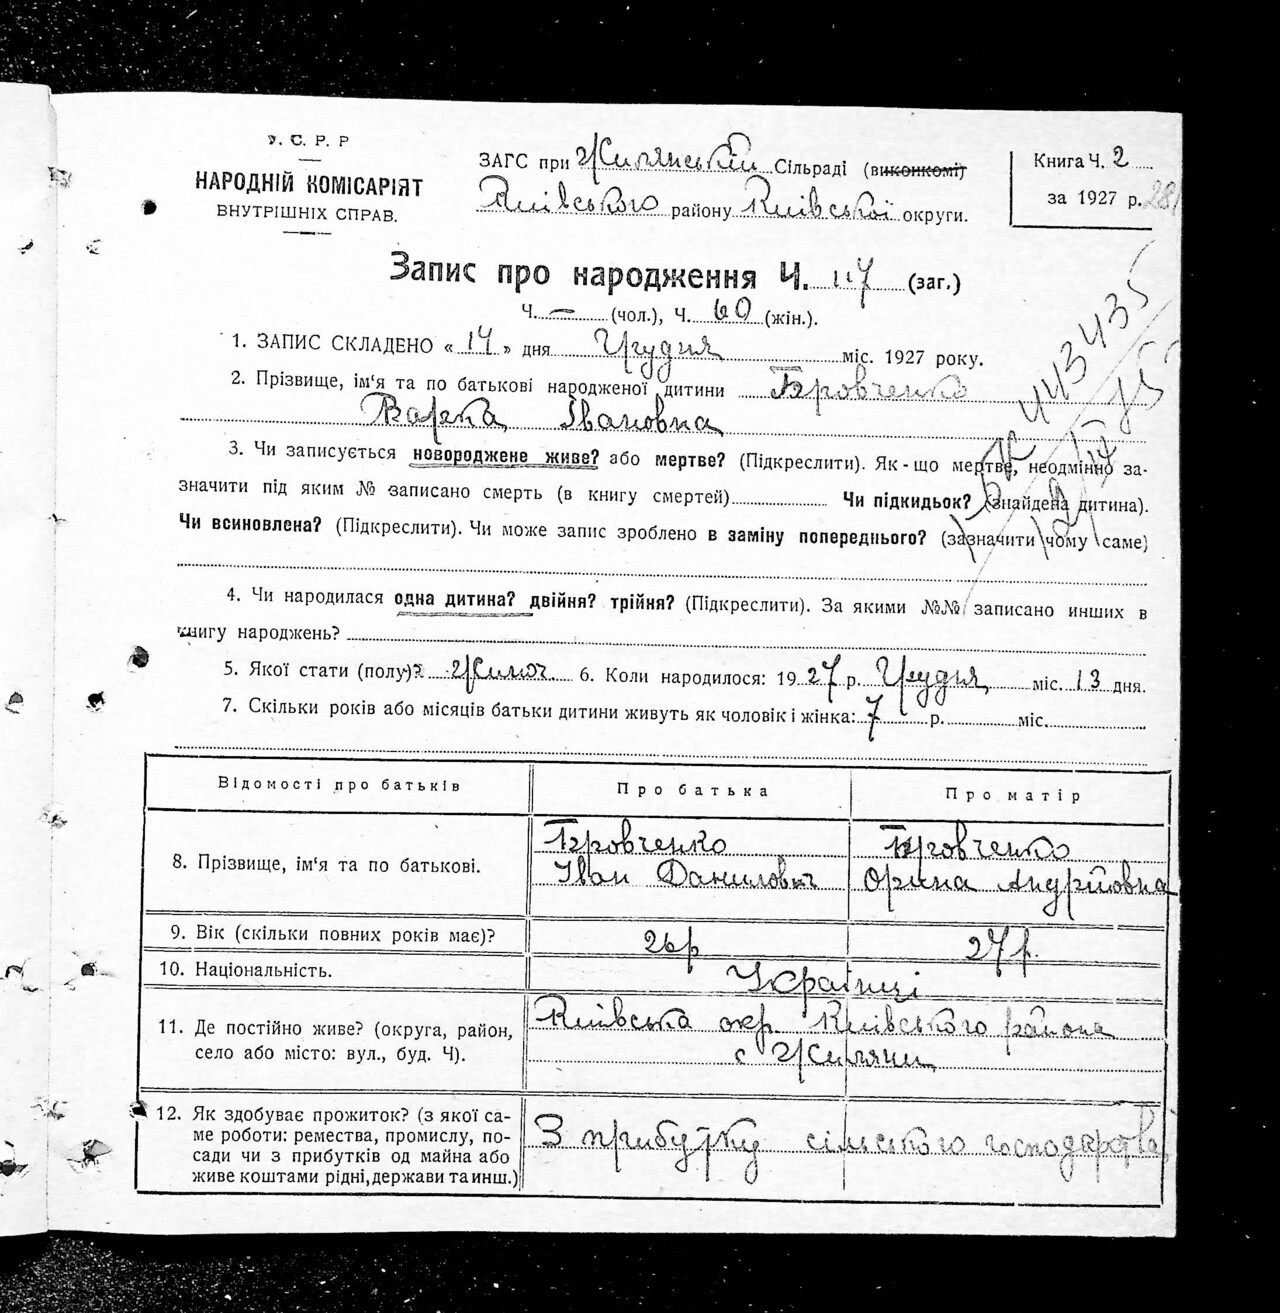 У. С. Р. Р
НАРОДНІЙ КОМІСАРІЯТ
ВНУТРІШНІХ СПРАВ.
ЗАГС при Жилянській Сільраді (виконкомі)
Київського району Київської округи.
Книга Ч. 2
за 1927 р. 281
Запис про народження Ч. 117 (заг.)
Ч. — (чол.), Ч. 60 (жін.).
1. ЗАПИС СКЛАДЕНО « 14 » дня Грудня міс. 1927 року.
2. Прізвище, ім‘я та по батькові народженої дитини Бровченко
Варка Івановна
3. Чи записується новороджене живе? або мертве? (Підкреслити). Як-що мертве, неодмінно за-
значити під яким № записано смерть (в книгу смертей) Чи підкидьок? (знайдена дитина).
Чи всиновлена? (Підкреслити). Чи може запис зроблено в заміну попереднього? (зазначити чому саме)
4. Чи народилася одна дитина? двійня? трійня? (Підкреслити). За якими №№ записано инших в
книгу народжень?
5. Якої стати (полу)? Жиноч 6. Коли народилося: 1927 р. Грудня міс. 13 дня.
7. Скільки років або місяців батьки дитини живуть як чоловік і жінка: 7 р. міс.
Відомості про батьків Про батька Про матір
8. Прізвище, ім‘я та по батькові. Бровченко Іван Данилович Бровченко Орина Андріівна
9. Вік (скільки повних років має)? 26 р 27 р.
10. Національність. Українці
11. Де постійно живе? (округа, район, Київська окр. Київського района
село або місто: вул., буд. Ч). с Жиляни
12. Як здобуває прожиток? (з якої са-
ме роботи: ремества, промислу, по-
сади чи з прибутків од майна або
живе коштами рідні, держави та инш.)
З прибутку сільського господарства
443435